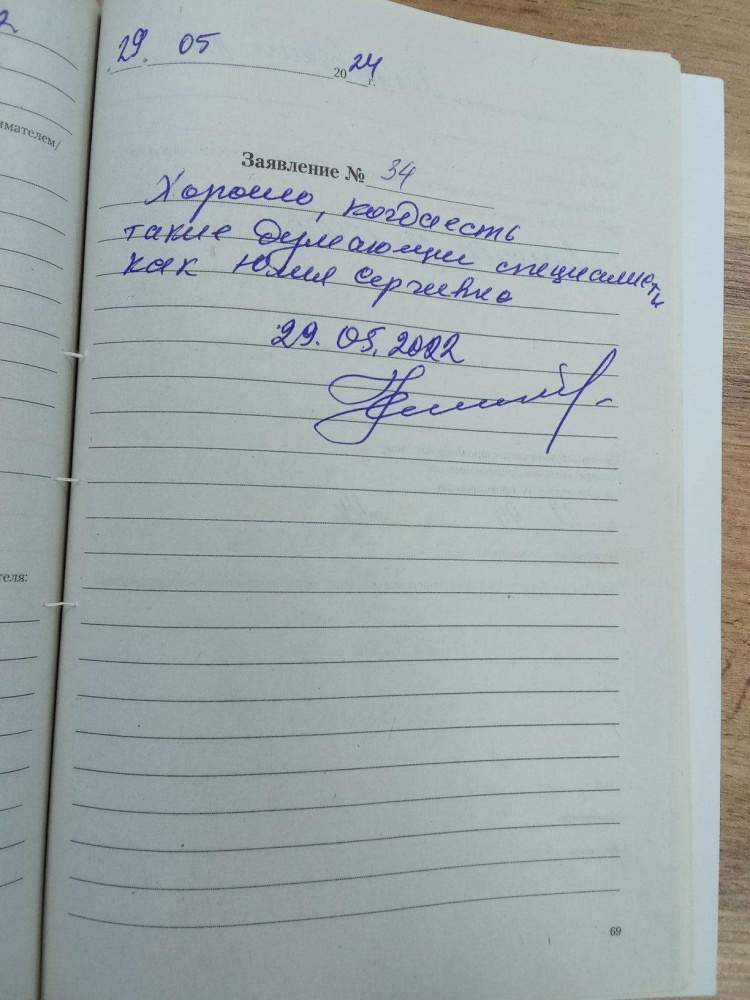 2
имателем/
теля:
29 05 2024 г.
Заявление № 34
Хорошо, когда есть
такие думающи специалисты
как Юлия Сергивна
29.05.2022
69